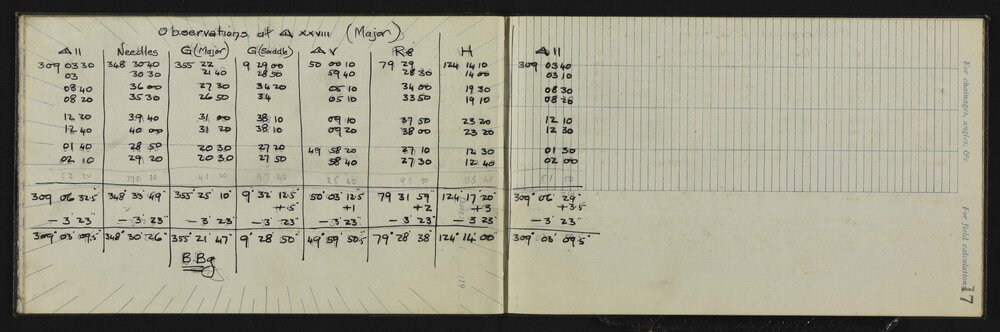 Observations at Δ XXVIII (Major)
Δ II Needles G (Major) G (Saddle) Δ V Re H Δ II
309 03 30 348 30 40 355 22 9 29 00 50 00 10 79 29 124 14 10 309 03 40
03 30 30 21 40 28 50 59 40 28 30 14 00 03 10
08 40 36 00 27 30 34 20 05 10 34 00 19 30 08 30
08 20 35 30 26 50 34 05 10 33 50 19 10 08 20
12 20 39 40 31 00 38 10 09 10 37 50 23 20 12 10
12 40 40 00 31 20 38 10 09 20 38 00 23 20 12 30
01 40 28 50 20 30 27 20 49 58 20 27 10 12 30 01 30
02 10 29 20 20 30 27 50 58 40 27 30 12 40 02 00
52 20 270 30 41 20 25 00 51 50
309 06 32.5" 348° 33' 49" 355° 25' 10" 9° 32' 12.5 50° 03' 12.5 79 31 59 124 17' 20" 309° 06' 29"
+.5" +1 +2 +3 +3.5
- 3' 23" - 3' 23" - 3' 23" - 3' 23" - 3' 23" - 3' 23" - 3 23 - 3' 23"
309° 03' 09.5" 348° 30' 26" 355° 21' 47" 9° 28' 50" 49° 59' 50.5" 79° 28' 38" 124° 14' 00" 309° 03' 09.5"
B.Bg
For chainages, angles, &c.
For field calculations
19
17